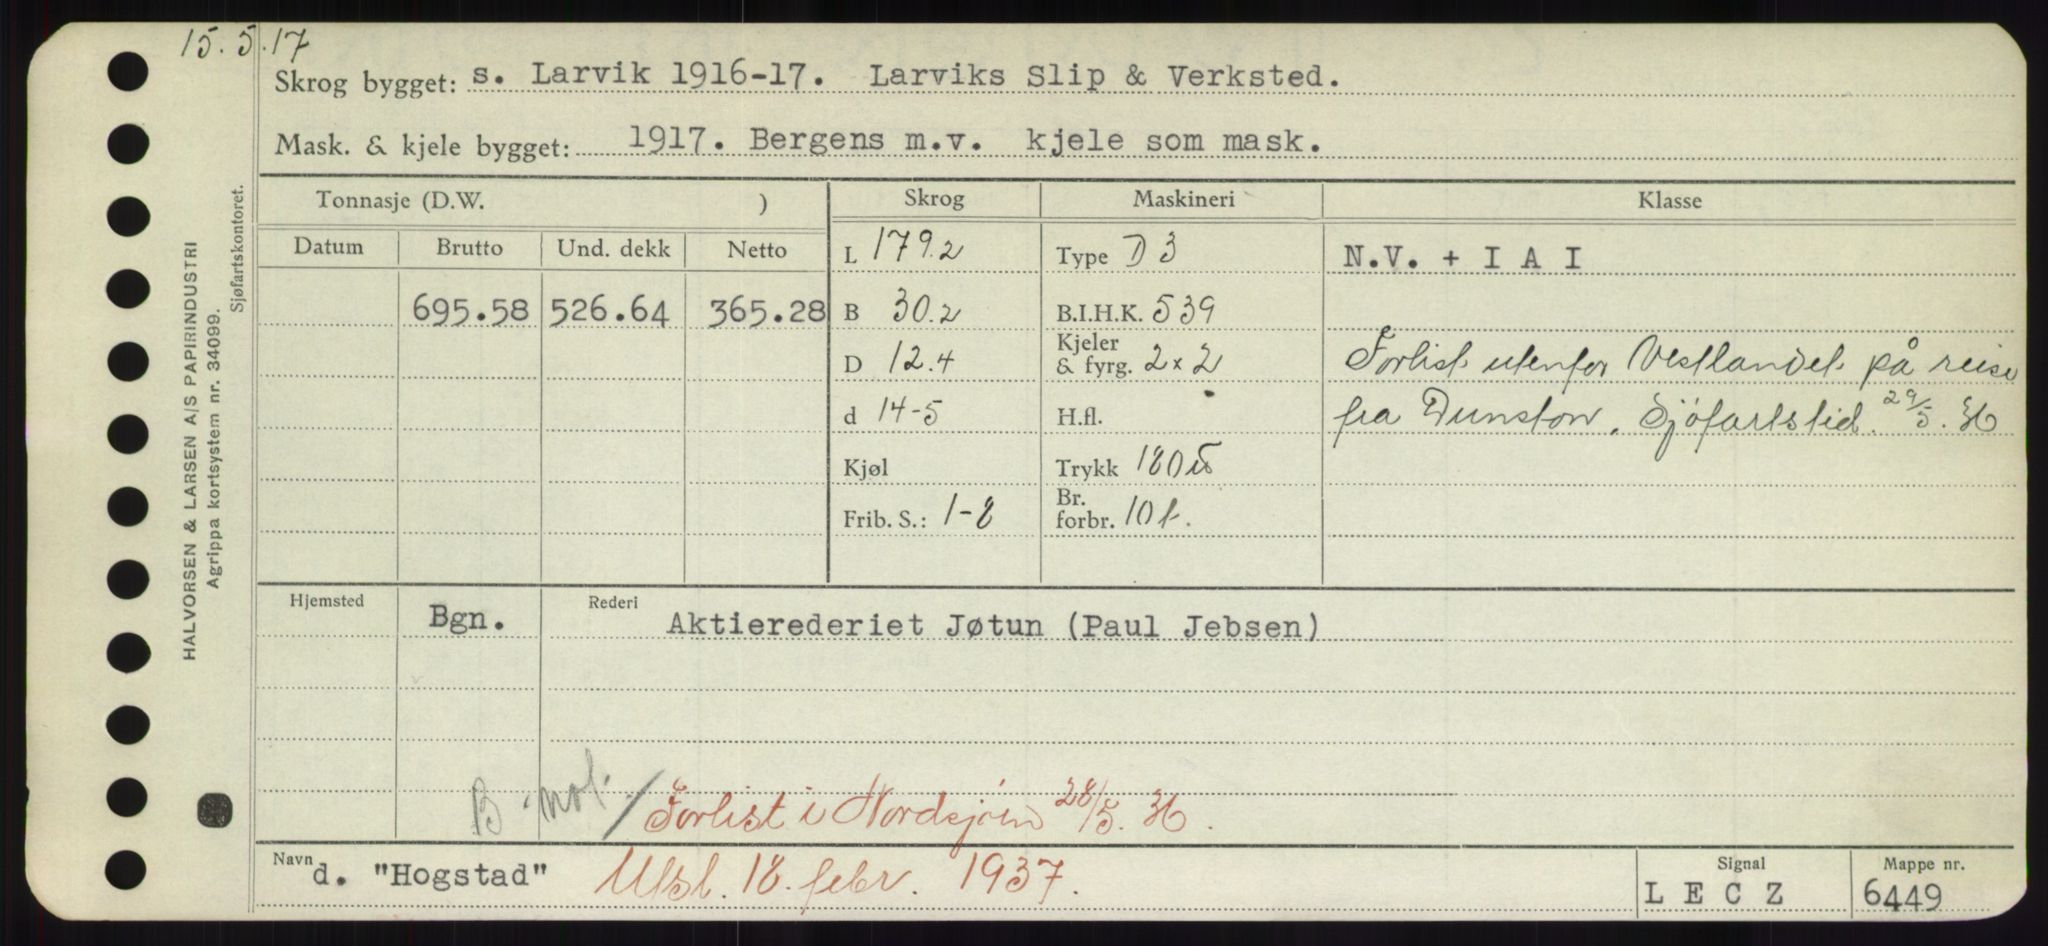 15.5.17
Skrog bygget: s. Larvik 1916-17. Larviks Slip & Verksted.
Mask. & kjele bygget: 1917. Bergens m.v. kjele som mask.
Tonnasje (D.W. )
Skrog
Maskineri
Klasse
Datum
Brutto
Und. dekk
Netto
695.58
526.64
365.28
L 179.2
B 30.2
D 12.4
d 14-5
Kjøl
Frib. S.: 1-8
Type D 3
B.I.H.K. 539
Kjeler
& fyrg. 2x2
H.fl.
Trykk 180
Br.
forbr. 10 t.
N.V. + I A I
Forlist utenfor Vestlandet på reise
fra Dunston. Sjöfartstid. 29/5. 36
Hjemsted
Bgn.
Rederi
Aktierederiet Jøtun (Paul Jebsen)
B. not.
Forlist i Nordsjöen 28/5. 36.
Navn
d. "Hogstad" Utsl. 18. febr. 1937.
Signal
L E C Z
Mappe nr.
6449
HALVORSEN & LARSEN A/S PAPIRINDUSTRI
Agrippa kortsystem nr. 34099.
Sjøfartskontoret.